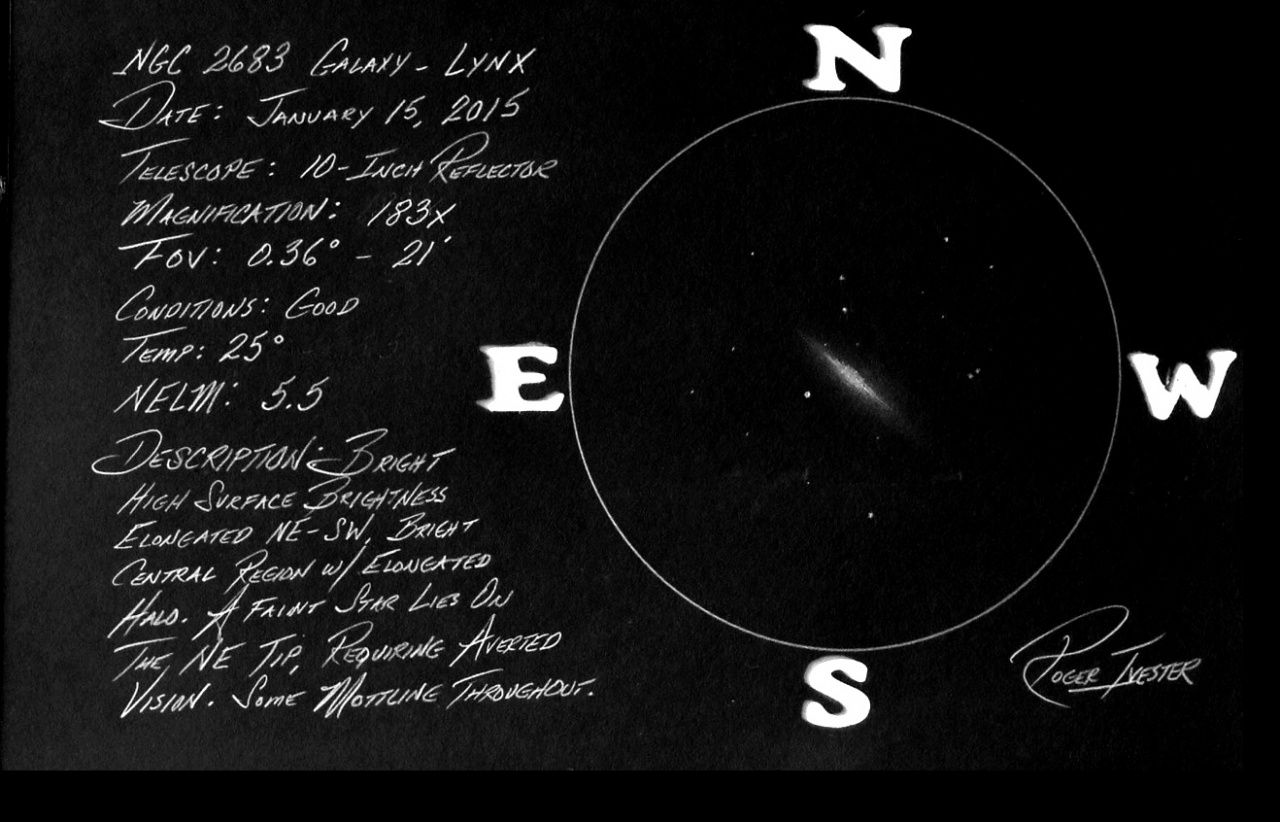 NGC 2683 Galaxy - Lynx
Date: January 15, 2015
Telescope: 10-Inch Reflector
Magnification: 183x
Fov: 0.36° - 21'
Conditions: Good
Temp: 25°
NELM: 5.5
Description: Bright
High Surface Brightness
Elongated NE-SW, Bright
Central Region w/ Elongated
Halo. A Faint Star Lies On
The, NE Tip, Requiring Averted
Vision. Some Mottling Throughout.
N
E
W
S
Roger Ivester